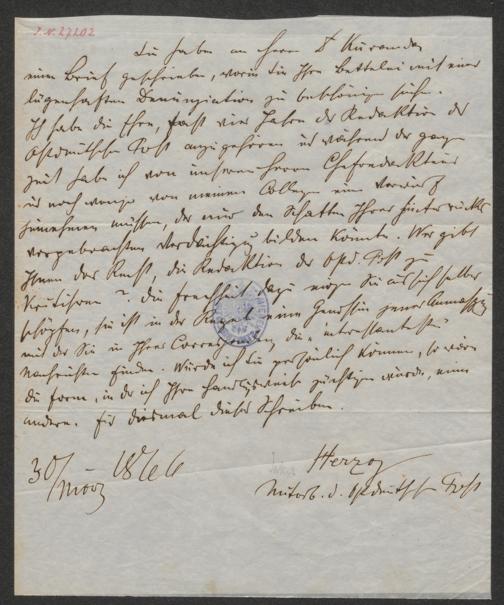 J. N. 27202
Sie haben an Herrn Dr Kuranda
einen Brief geschrieben, worin Sie Ihre Bettelei mit einer
lügenhaften Denunziation zu beschönigen suchen.
Ich habe die Ehre, fast vier Jahre der Redaktion der
Ostdeutschen Post anzugehören und während der ganzen
Zeit habe ich von unserem Herrn Chefredakteur
und noch weniger von meinen Collegen einen Vorwurf
hinnehmen müssen, der nur den Schatten Ihrer hinterrücks
vorgebrachten Verdächtigung bilden könnte. Wer gibt
Ihnen das Recht, die Redaktion der Ostd. Post zu
? Die Frechheit dazu mögen Sie aus sich selber
schöpfen, sie ist in der Regel eine Genossin jener Anmassung
mit der Sie in Ihrer die "interessantesten"
Nachrichten finden. Würde ich Sie persönlich kennen, so wäre
die Form, in der ich Ihre Handlungsweise züchtigen würde, eine
andere. Für diesmal dieses Schreiben.
30/März 1866
Herzog
Mitarb. d. Ostdeutschen Post